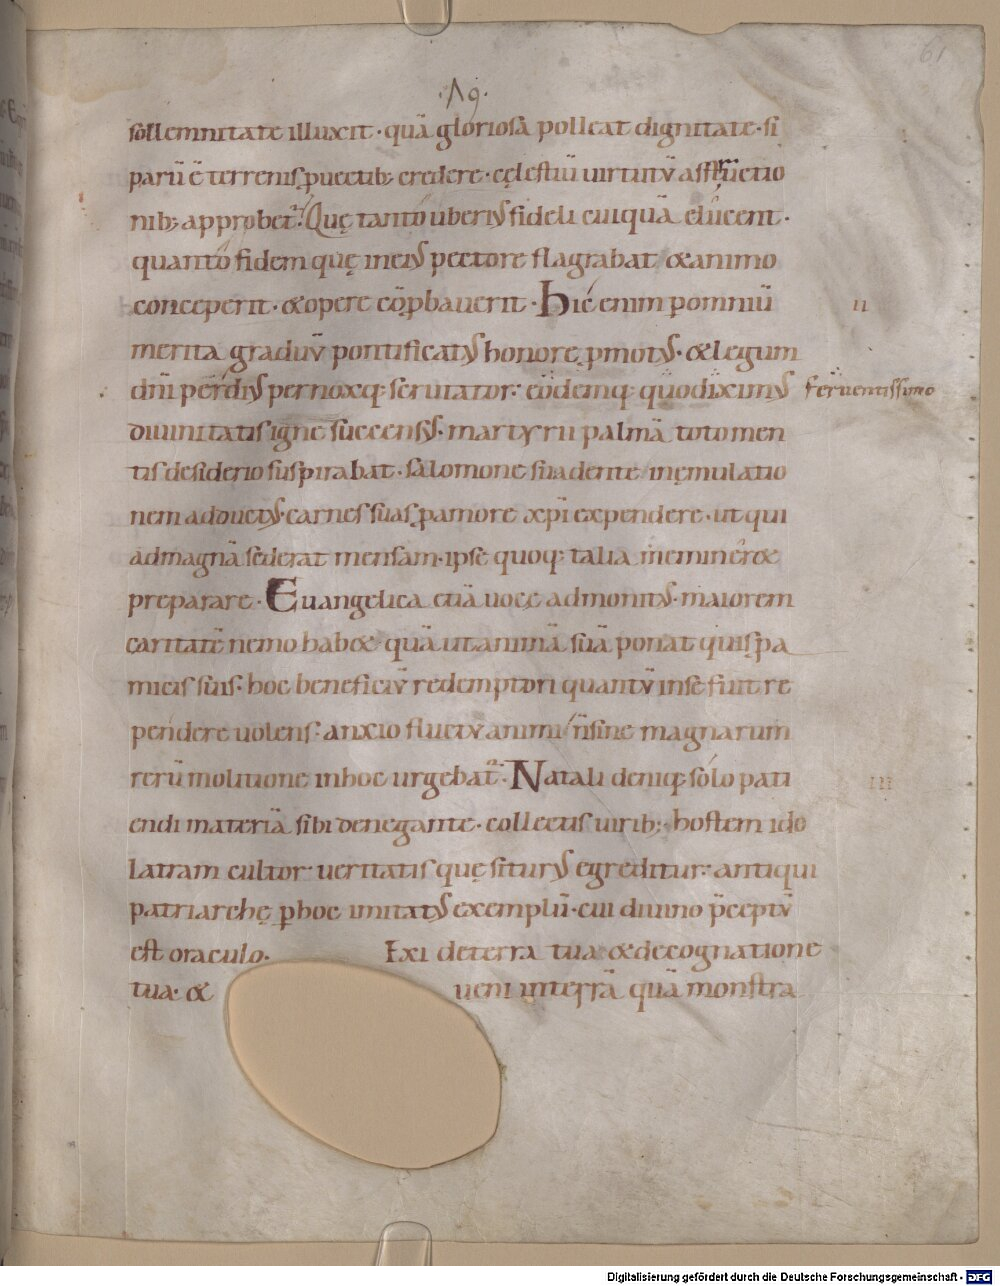 61
·Λ9·
sollemnitate illuxit · quā gloriosa polleat dignitate · si
parū ē terrenis ꝓuectib; credere · cęlestiū uirtutū assertio
nib; approbet᷑. Quę tanto uberiꝰ fideli cuiquā elucent ·
quanto fidem quę in eiꝰ pectore flagrabat & animo
conceperit · & opere cōꝓbauerit · Hic enim ꝑ omniū
merita graduū pontificatꝰ honore ꝓmotꝰ · & legum
dn̄i perdiꝰ pernoxq; scrutator · eodemq; quo diximꝰ feruentissimo
diuinitatis igne succensꝰ · martyrii palmā toto men
tis desiderio suspirabat · salomone suadente in ęmulatio
nem adductꝰ · carnes suas ꝓ amore xp̄i expendere · ut qui
ad magnā sederat mensam · ipse quoq; talia meminer&
preparare · Euangelica etiā uoce admonitꝰ · maiorem
caritatē nemo hab& quā ut animā suā ponat quis ꝓ a
micis suis · hoc beneficiū redemptori quantū in se fuit re
pendere uolens · anxio fluctu animi n̄ sine magnarum
rerū molitione in hoc urgebat᷑. Natali deniq; solo pati
endi materiā sibi denegante · collectis uirib; · hostem ido
latram cultor ueritatis quęsiturꝰ egreditur · antiqui
patriarchę ꝑ hoc imitatꝰ exemplū · cui diuino p̄ceptū
est oraculo. Exi de terra tua & de cognatione
tua · & ueni in terrā quā monstra
II
III
Digitalisierung gefördert durch die Deutsche Forschungsgemeinschaft - DFG